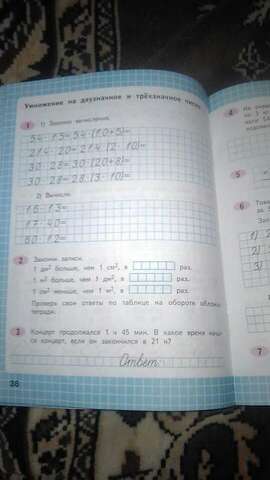 Умножение на двузначное и трёхзначное число
1
1) Закончи вычисления.
54 · 15 = 54 · (10+5) =
214 · 20 = 214 · (2 · 10) =
30 · 28 = 30 · (20+8) =
30 · 28 = 28 · (3 · 10) =
2) Вычисли.
16 · 13 =
17 · 40 =
60 · 12 =
2
Закончи записи.
1 дм² больше, чем 1 см², в раз.
1 м² больше, чем 1 дм², в раз.
1 см² меньше, чем 1 м², в раз.
Проверь свои ответы по таблице на обороте обложки
тетради.
3
Концерт продолжался 1 ч 45 мин. В какое время начал-
ся концерт, если он закончился в 21 ч?
Ответ:
38
4
На
5
6
1)
2)
3)
7